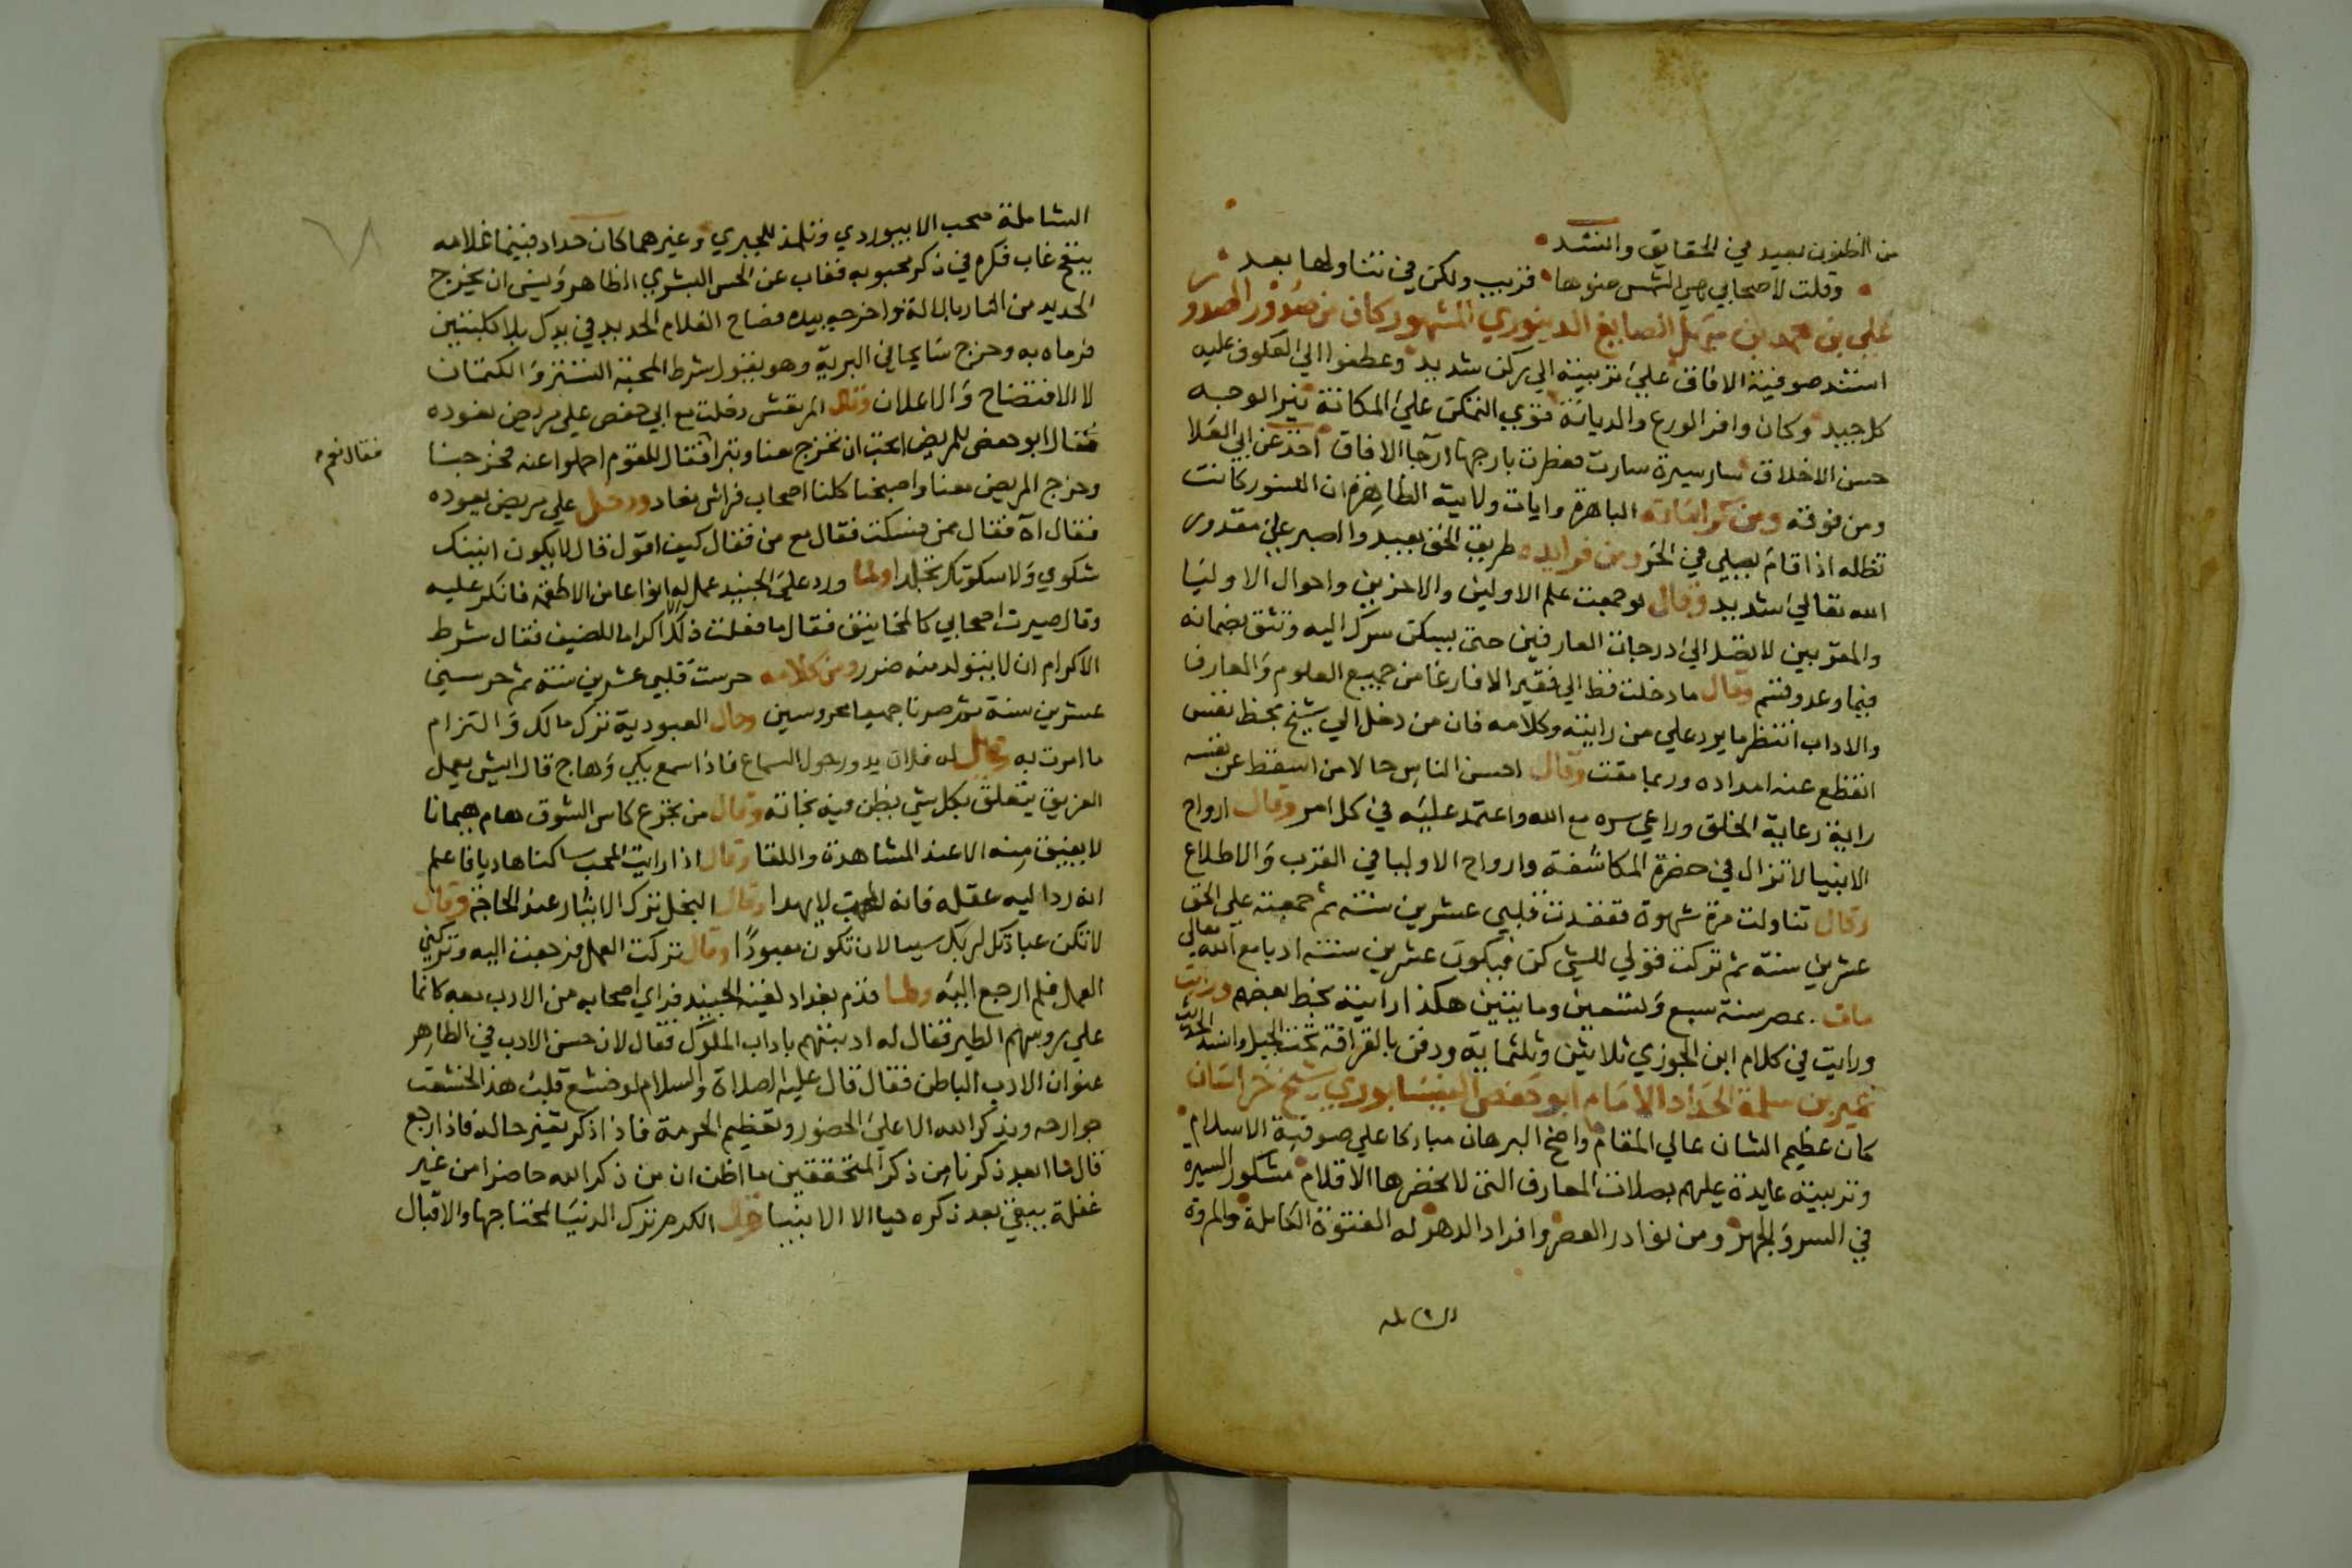 من الظنون بعيد في الحقايق وانشد
وقلت لاصحابي هي الشمس ضوها قريب ولكن في تناولها بعد
علي بن محمد بن سهل الصايغ الدينوري المشهور كان من صدور الصدور
استند صوفية الافاق علي تربيته الي ركن شديد وعطفوا الي العكوف عليه
كل جيد وكان وافر الورع والديانة قوي التمكن علي المكانة نير الوجه
حسن الاخلاق سار سيرة سارت فعطرت بارجها ارجا الافاق اخذ عن ابي العلا
ومن فوقه ومن كراماته الباهرة وايات ولايته الظاهرة ان النسور كانت
تظله اذا قام يصلي في الحر ومن فوايده طريق الحق بعيد والصبر علي مقدور
الله تعالي شديد وقال لو جمعت علم الاولين والاخرين واحوال الاوليا
والمقربين لا تصل الي درجات العارفين حتي يسكن سرك اليه وتثق بضمانه
فيما وعد وقسم وقال ما دخلت قط الي فقير الا فارغا من جميع العلوم والمعارف
والاداب انتظر ما يرد علي من رايته وكلامه فان من دخل الي شيخ بحظ نفس
انقطع عنه امداده وربما مقت وقال احسن الناس حالا من اسقط عن نفسه
راية رعاية الخلق وراعي سره مع الله واعتمد عليه في كل امر وقال ارواح
الانبيا لا تزال في حضرة المكاشفة وارواح الاوليا في القرب والاطلاع
وقال تناولت مرة شهوة ففقدت قلبي عشرين سنة ثم جمعته علي الحق
عشرين سنة ثم تركت قولي للشي كن فيكون عشرين سنة ادبا مع الله تعالي
مات بمصر سنة سبع وتسعين ومايتين هكذا رايته بخط بعضهم
ورايت في كلام ابن الجوزي ثلاثين وثلثماية ودفن بالقرافة تحت الجبل واسند الحديث
عمير بن سلمة الحداد الامام ابو حفص النيسابوري شيخ خراسان
كان عظيم الشان عالي المقام واضح البرهان مباركا علي صوفية الاسلام
وتربيته عايدة عليهم بصلات المعارف التي لا تحضرها الاقلام مشكور السيرة
في السر والجهر ومن نوادر العصر وافراد الدهر له الفتوة الكاملة والمروة
الشاملة
الشاملة صحب الابيوردي وتلمذ للحيري وغيرهما كان حداد فبينما غلامه
ينفخ غاب فكره في ذكر محبوبه فغاب عن الحس البشري الظاهر ونسي ان يخرج
الحديد من النار بالالة فاخرجه بيده فصاح الغلام الحديد في يدك بلا كلبتين
فرماه به وخرج سايحا في البرية وهو يقول شرط المحبة التستر والكتمان
لا الافتضاح والاعلان وقال المرتعش دخلت مع ابي حفص علي مريض نعوده
فقال ابو حفص للمريض اتحب ان تخرج معنا وتبرا فقال للقوم احملوا عنه فخرجنا
فقال نعم
وخرج المريض معنا واصبحنا كلنا اصحاب فراش نعاد ودخل علي مريض يعوده
فقال آه فقال ممن فسكت فقال مع من فقال كيف اقول قال لا يكون انينك
شكوي ولا سكوتك تجلدا ولما ورد علي الجنيد عمل له انواعا من الاطعمة فانكر عليه
وقال صيرت اصحابي كالمخانيث فقال ما فعلت ذلك الا اكراما للضيف فقال شرط
الاكرام ان لا يتولد منه ضرر ومن كلامه حرست قلبي عشرين سنة ثم حرسني
عشرين سنة ثم صرنا جميعا محروسين وقال العبودية ترك مالك والتزام
ما امرت به وقيل له فلان يدور حول السماع فاذا سمع بكي وهاج قال ايش يعمل
الغريق يتعلق بكل شي يظن فيه نجاته وقال من تجرع كاس الشوق هام هيمانا
لا يفيق منه الا عند المشاهدة واللقا وقال اذا رايت المحب ساكنا هاديا فاعلم
انه رد اليه عقله فان المحب لا يهدا وقال البخل ترك الايثار عند الحاجة وقال
لا تكن عبادتك لربك سببا لان تكون معبودا وقال تركت العمل فرجعت اليه وتركني
العمل فلم ارجع اليه ولما قدم بغداد لقيه الجنيد فراي اصحابه من الادب معه كانما
علي روسهم الطير فقال له ادبتهم باداب الملوك فقال لان حسن الادب في الظاهر
عنوان الادب الباطن فقال قال عليه الصلاة والسلام لو خشع قلب هذا لخشعت
جوارحه ويذكر الله الا علي الحضور وتعظيم الحرمة فاذا ذكر تغير حاله فاذا رجع
قال ما ابعد ذكرنا من ذكر المتحققين ما اظن ان من ذكر الله حاضرا من غير
غفلة يبقي بعد ذكره حيا الا الانبيا وقال الكرم ترك الدنيا لمحتاجها والاقبال